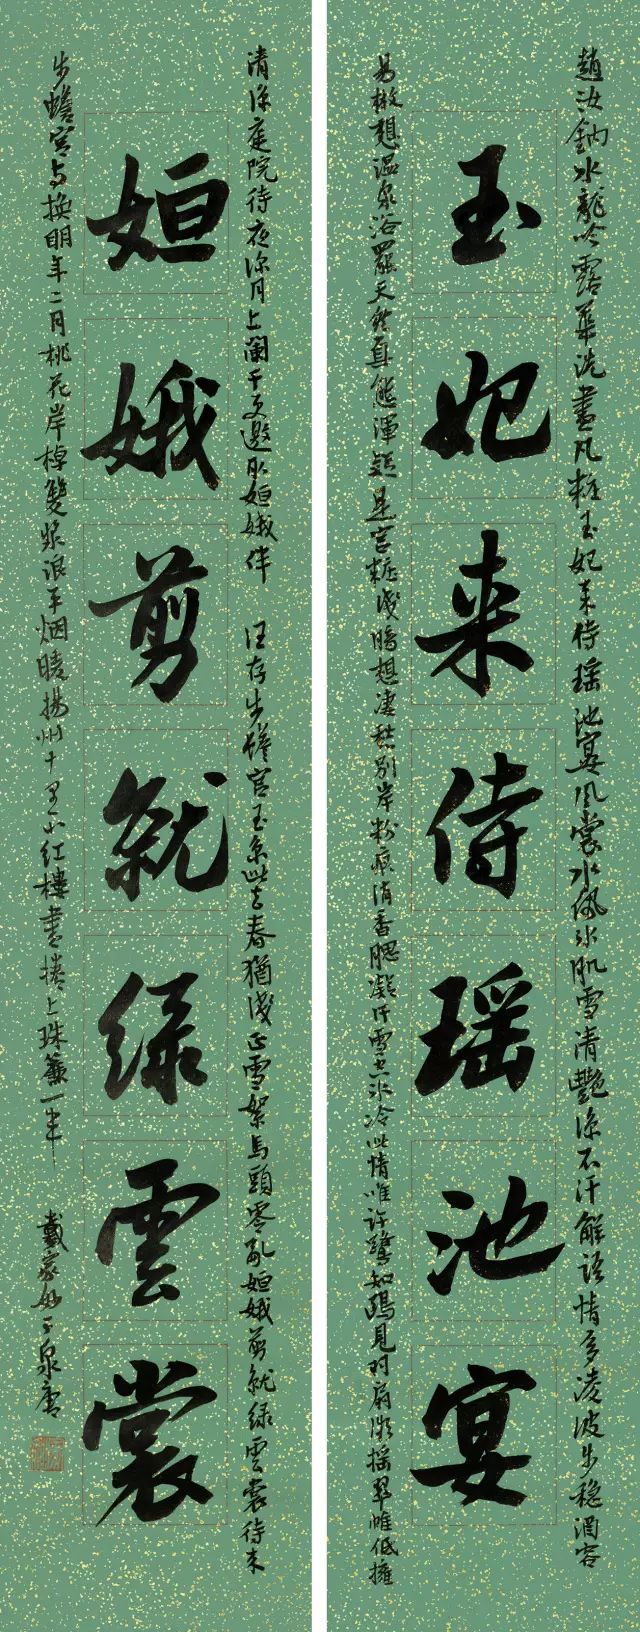 趙汝鈉水龍吟露華洗盡凡粧玉妃来侍瑶池宴風裳水佩冰肌雪清艷涼不汗解語情多凌波步穩酒容
玉妃来侍瑶池宴
易散想温泉浴罷天然真態渾疑是宮粧淺暗想凄愁別岸粉痕消香腮凝汗雪空冰冷此情唯許鷺知鷗見羽扇漸搖翠帷低擁
清涼庭院待夜深月上闌干更邀取姮娥伴 汪存步蟾宮玉京此去春猶淺正雪絮馬頭零亂姮娥剪就绿雲裳待来
姮娥剪就绿雲裳
步蟾宮与換明年二月桃花岸棹雙漿浪平烟暖揚州十里小紅樓盡捲上珠簾一半 戴家妙于泉唐